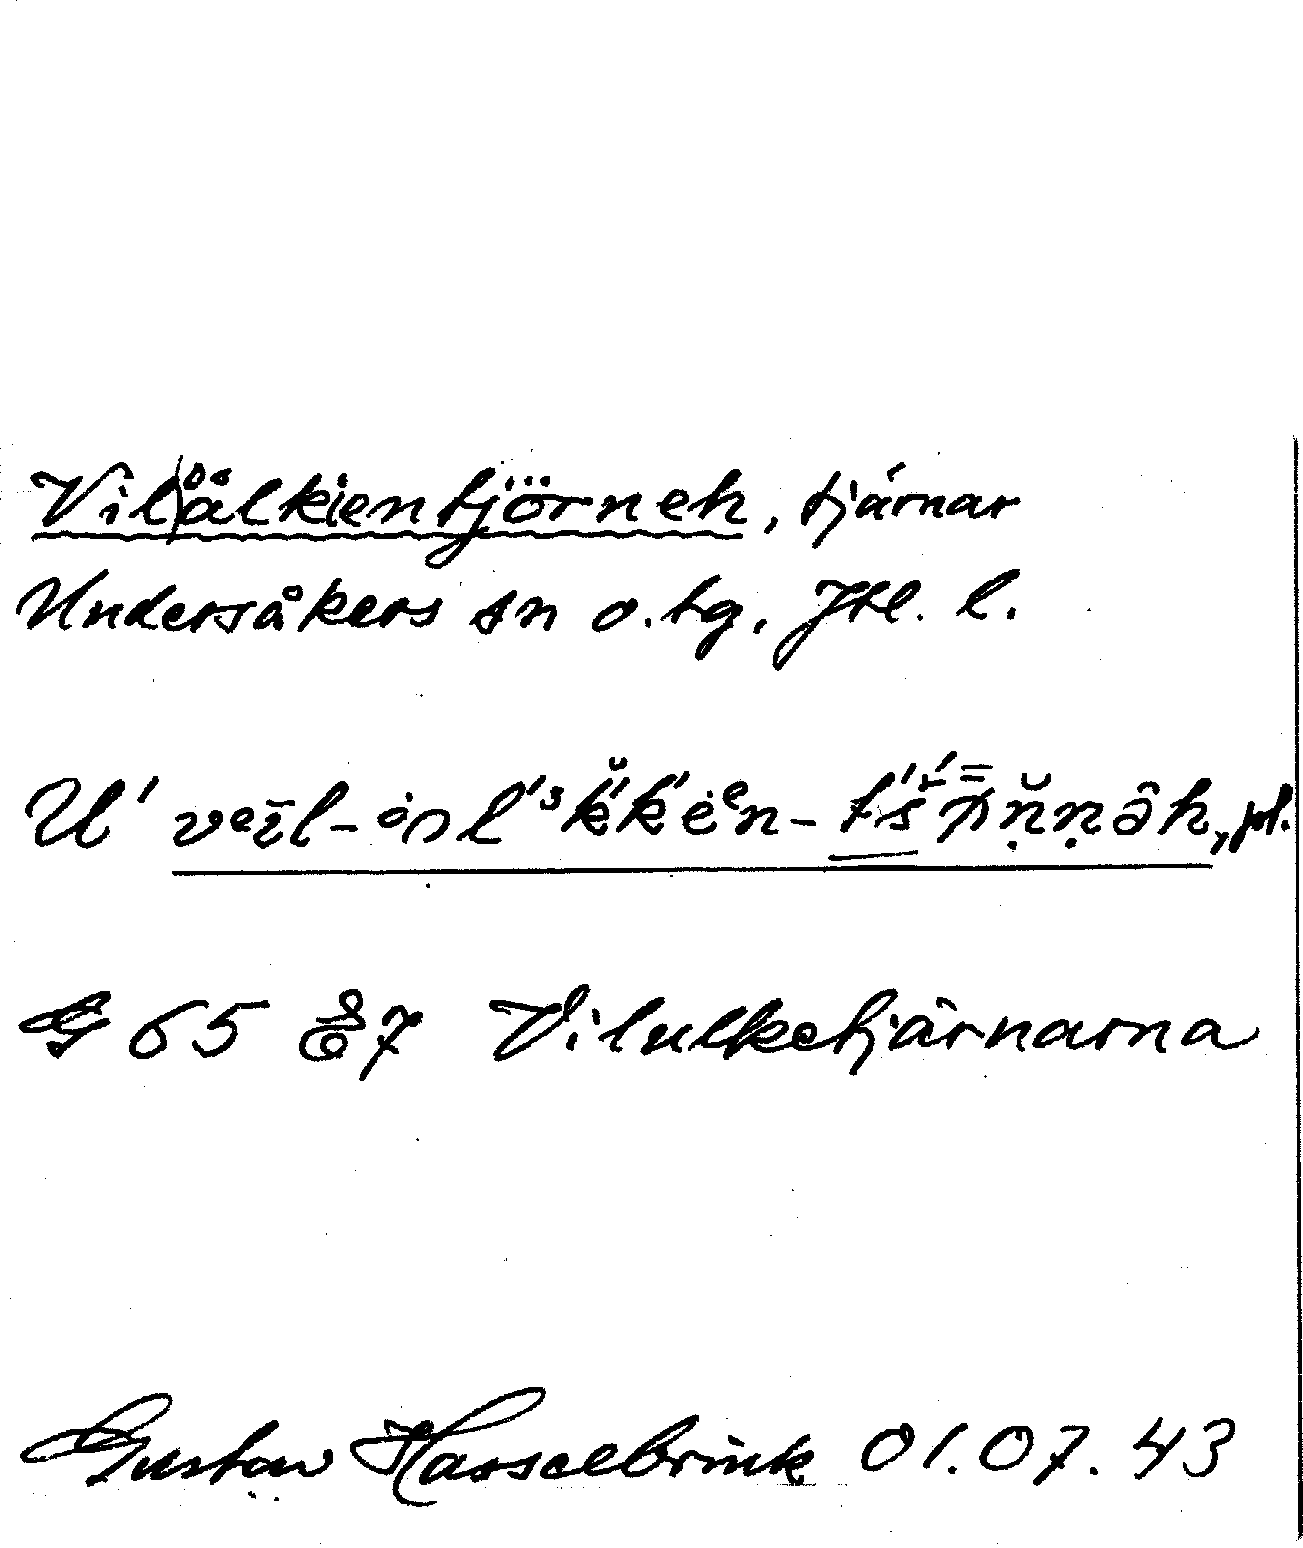 Vil|ålkientjörneh, tjärnar
Undersåkers sn o. tg, Jtl. l.
U'
pl.
G 65 E7 Vilulketjärnarna
Gustav Hasselbrink 01.07.43